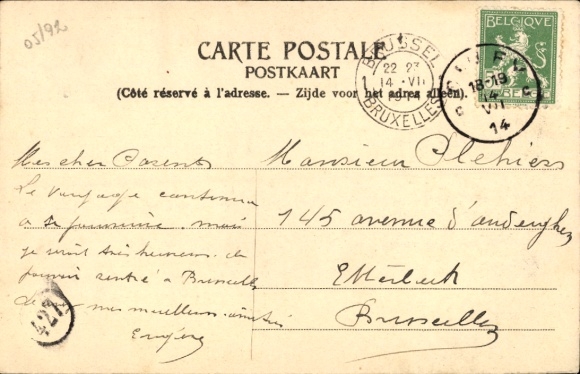 05/92
CARTE POSTALE
POSTKAART
(Côté réservé à l'adresse. — Zijde voor het adres alleen).
BRUSSEL
22 - 23
14 VII
1914
BRUXELLES
BELGIQUE
BELGIË
18-19
14
VII
14
Mes cher Parents
Le voyage continue
a se mais
je très heureux de
rentré a Bruxelles
de mes meilleurs amitiés
Eugène
427
Monsieur
145 avenue d'auderghem
Etterbeek
Bruxelles